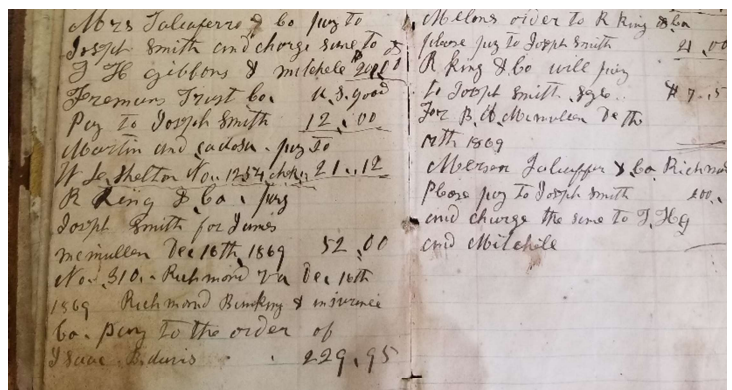 Mrs Taliaferro & Co pay to
Joseph Smith and charge same to
T H Gibbons & Mitchele $200.00
Fremans Trust Co. U.S. good
Pay to Joseph Smith 12.00
Martin and pay to
W Shelton No. 1254 21.12
R King & Co. pay
Joseph Smith for James
mcmullen Dec 16th, 1869 52.00
No. 310. Richmond Va Dec 16th
1869 Richmond Banking & insurance
Co. pay to the order of
Isaac B. davis . . 229.95
Melons order to R King & Co
please pay to Joseph Smith 21.00
R King & Co will pay
to Joseph Smith $7.5
For B. Mcmullen De the
17th 1869
& Co. Richmo
Please pay to Joseph Smith 200.
and charge the same to T. H G
and Mitchele